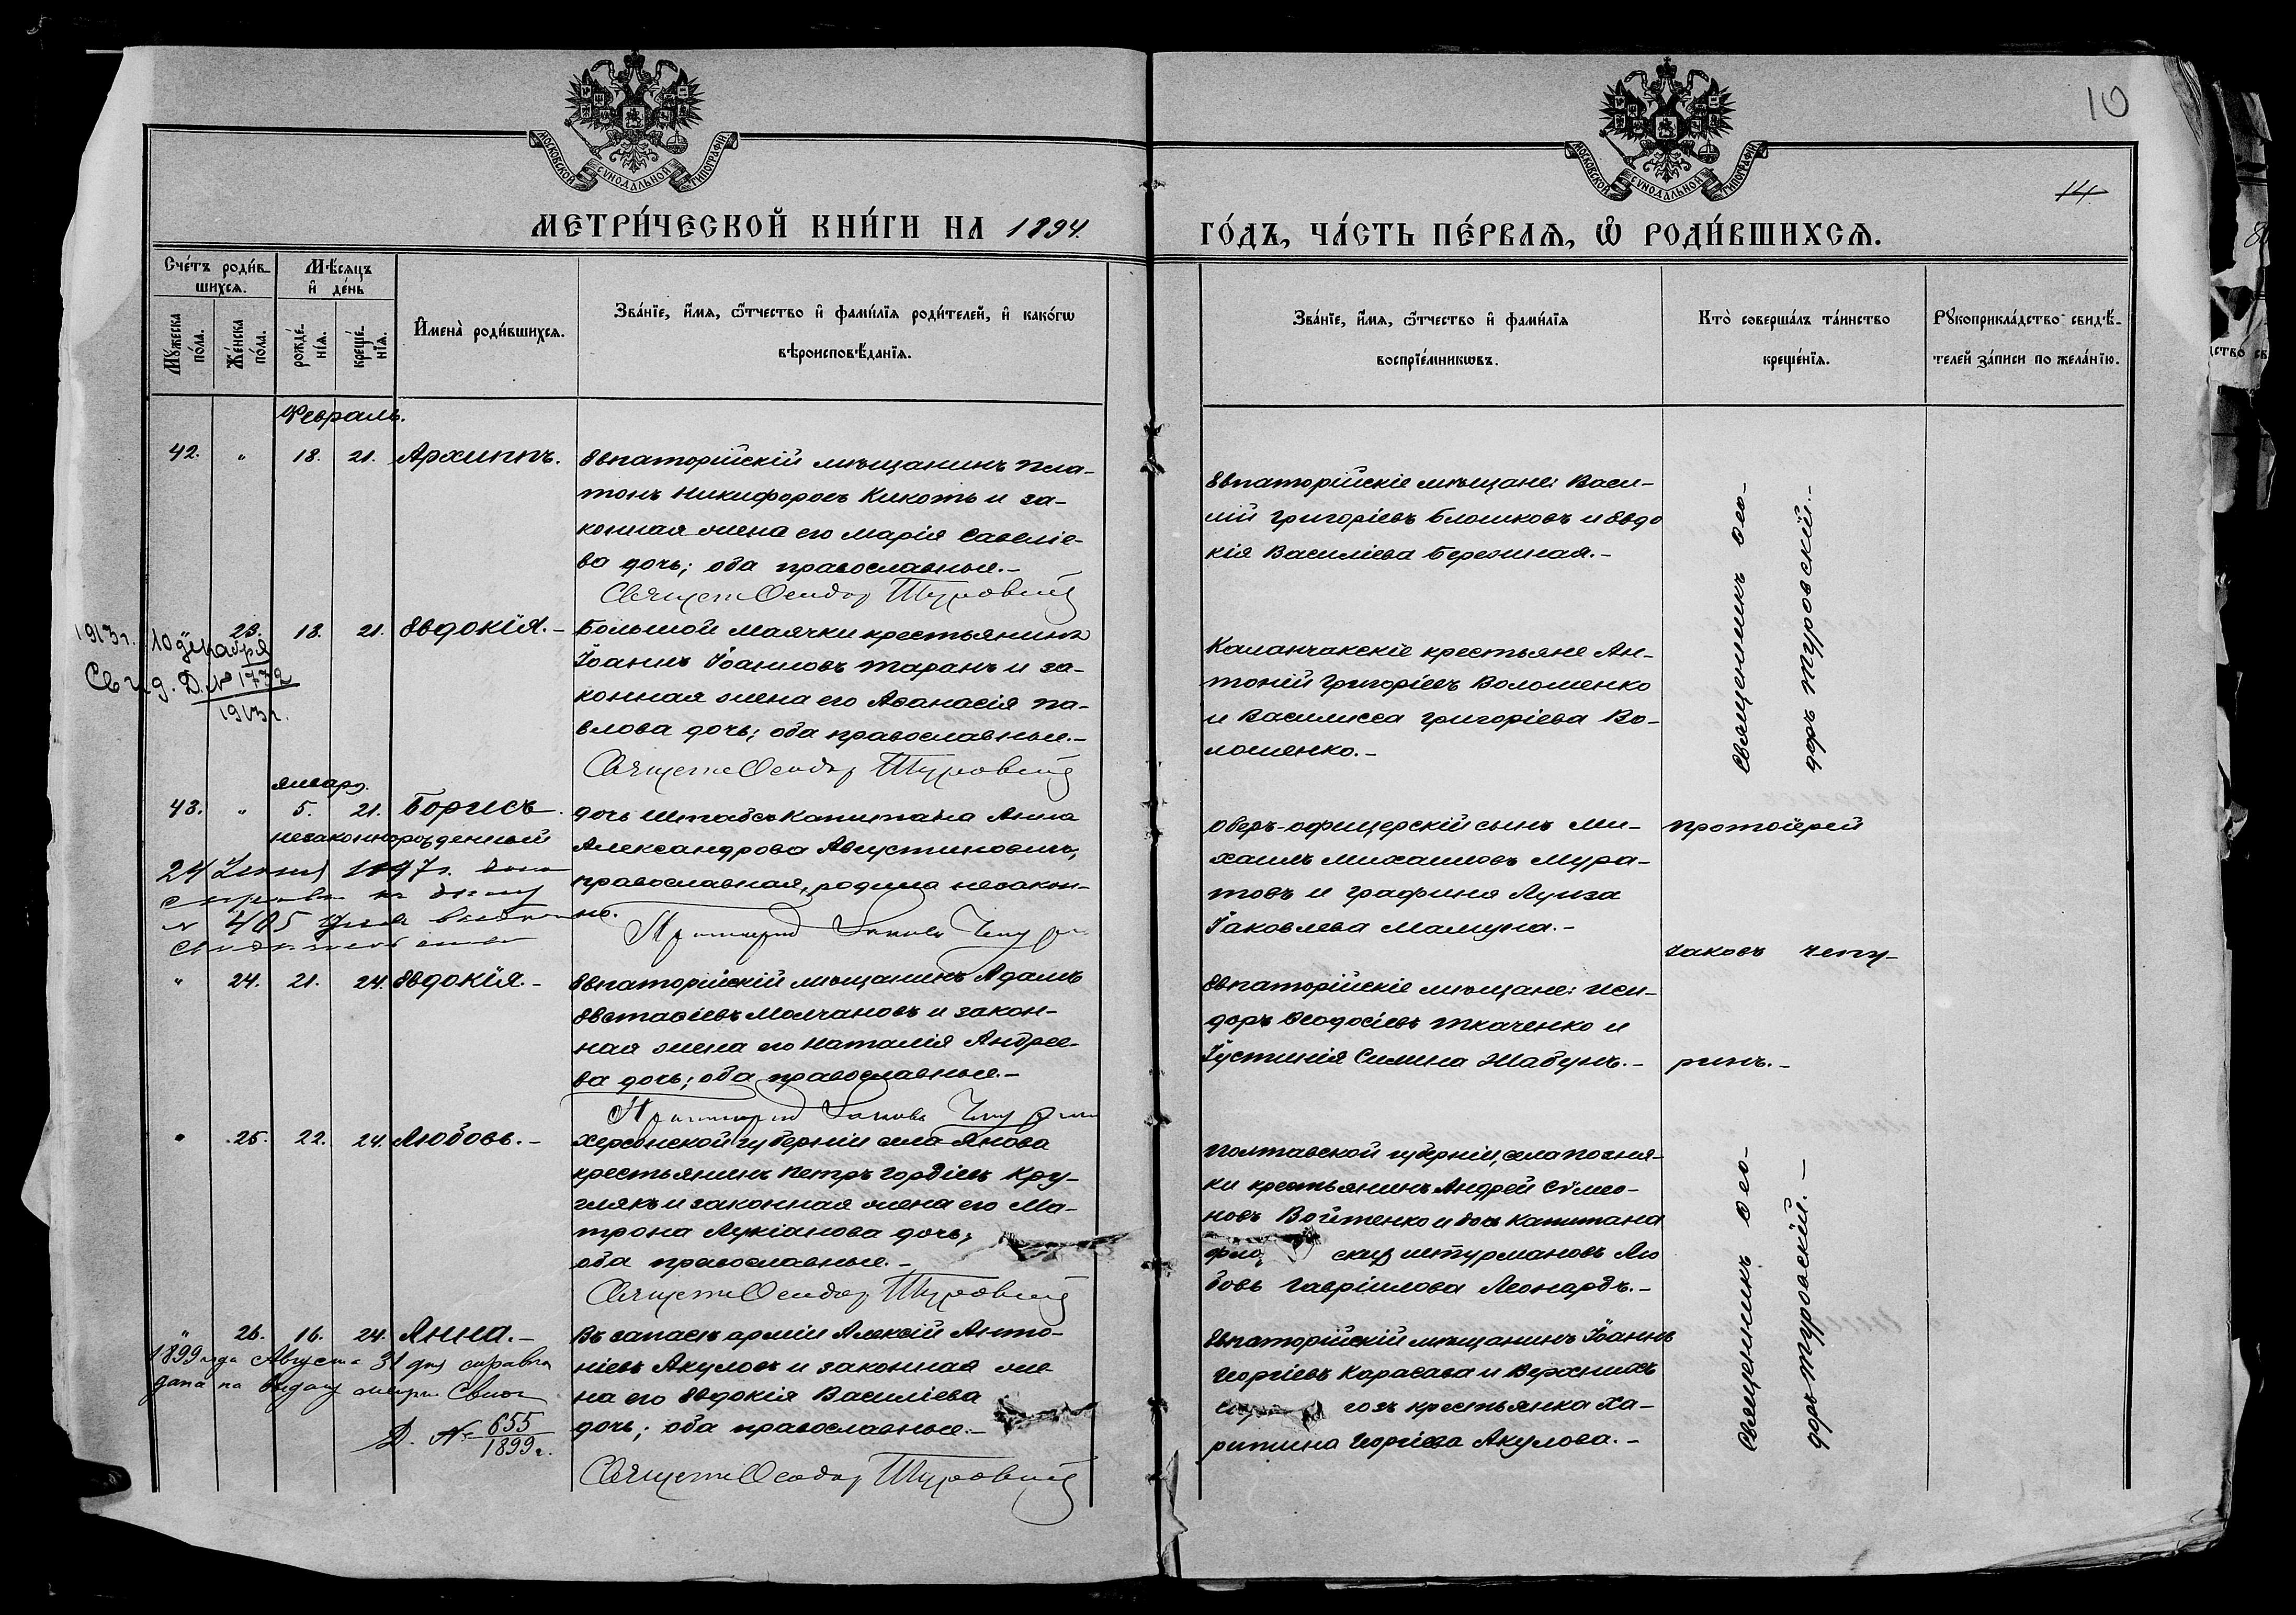 10
14.
МОСКОВСКОЙ СѴНОДАЛЬНОЙ ТИПОГРАФІИ
МОСКОВСКОЙ СѴНОДАЛЬНОЙ ТИПОГРАФІИ
МЕТРИ́ЧЕСКОЙ КНИ́ГИ НА 1894.
ГО́ДЪ, ЧА́СТЬ ПЕ́РВАѦ, Ѡ҆ РОДИ́ВШИХСѦ.
Сче́тъ роди́в-
шихсѧ.
Мѣ́сѧцъ
и҆ де́нь
Мꙋ́жеска
по́ла.
Же́нска
по́ла.
рожде́-
нїѧ.
креще́-
нїѧ.
И҆мена̀ роди́вшихсѧ.
Зва́нїе, и҆́мѧ, ѻ҆́тчество и҆ фами́лїѧ роди́телей, и҆ како́гѡ
вѣроисповѣ́данїѧ.
Зва́нїе, и҆́мѧ, ѻ҆́тчество и҆ фами́лїѧ
воспрїе́мникѡвъ.
Кто̀ соверша́лъ та́инство
креще́нїѧ.
Рꙋкоприкла́дство свидѣ́-
телей за́писи по жела́нїю.
Февраль.
42. " 18. 21. Архиппъ.
Евпаторійскій мѣщанинъ Пла-
тонъ Никифоровъ Кикоть и за-
конная жена его Марія Савеліе-
ва дочь; оба православные.-
Священ. Ѳеодор Туровскій
Евпаторійскіе мѣщане: Васи-
лій Григоріевъ Блошковъ и Евдо
кія Василіева Бережная.-
Священникъ Ѳео-
доръ Туровскій.-
23. 18. 21. Евдокія.-
1913 г. 10 декабря
Свид. Д. № 1772
1913 г.
Большой Маячки крестьянинъ
Іоаннъ Іоанновъ Таранъ и за-
конная жена его Аѳанасія Па-
влова дочь; оба православные.-
Священ. Ѳеодор Туровскій
Каланчакскіе крестьяне Ан-
тоній Григоріевъ Волошенко
и Василисса Григоріева Во-
лошенко.-
январ.
43. " 5. 21. Борисъ.
незаконнорожденный
24 1897 г.
№ 405
дочь Штабсъ Капитана Анна
Александрова Августиновичъ,
православная, родила незакон-
но.
Протоіерей Іаковъ Чепурин
Оберъ-офицерскій сынъ Ми-
хаилъ Михаиловъ Мура-
товъ и графиня Луиза
Іаковлева Мамуна.-
Протоіерей
Іаковъ Чепу-
ринъ.-
" 24. 21. 24. Евдокія.-
Евпаторійскій мѣщанинъ Адамъ
Евстафіевъ Молчановъ и закон-
ная жена его Наталія Андрее-
ва дочь; оба православные.-
Протоіерей Іаковъ Чепурин
Евпаторійскіе мѣщане: Иси-
доръ Ѳеодосіевъ Ткаченко и
Іустинія Симина Шабунъ.-
" 25. 22. 24. Любовь.-
Херсонской губерніи села Янова
крестьянинъ Петръ Гордіевъ Кру-
глякъ и законная жена его Ма-
трона Лукіанова дочь;
оба православные.-
Священ. Ѳеодор Туровскій
Полтавской губерніи, села Позня-
ки крестьянинъ Андрей Сѵмео-
новъ Войтенко и дочь Капитана
фло скихъ штурмановъ Лю
бовь Гавріилова Леонардъ.-
Священникъ Ѳео-
доръ Туровскій.-
" 26. 16. 24. Анна.-
1899 года Августа 31 дня справка
дана на выдачу метри.
Д. № 655
1899 г.
Въ запасѣ арміи Алексій Анто-
ніевъ Акуловъ и законная же
на его Евдокія Василіева
дочь; оба православные.-
Священ. Ѳеодор Туровскій
Евпаторійскій мѣщанинъ Іоаннъ
Георгіевъ Карасава и Верхнихъ
гозъ крестьянка Ха-
ритина Георгіева Акулова.-